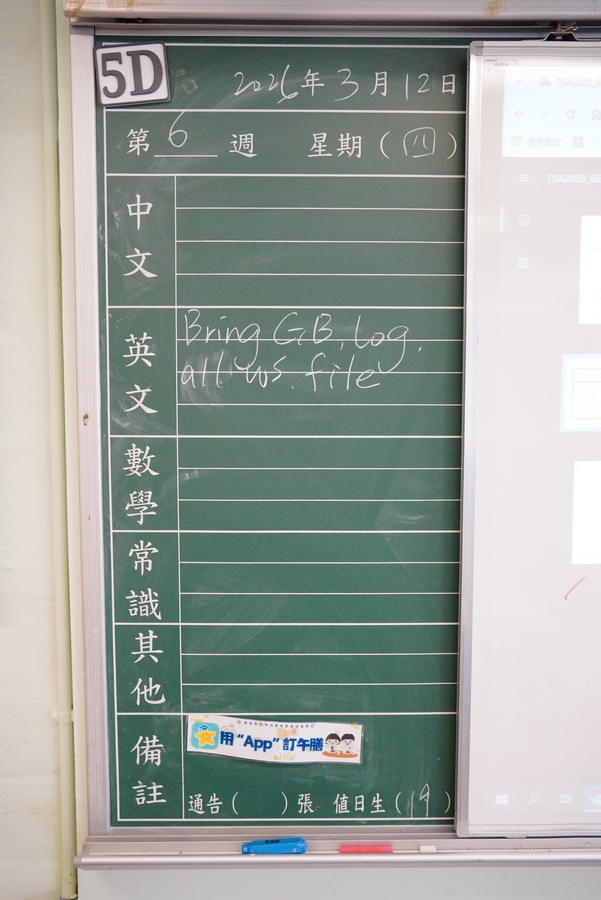 5D
2026年3月12日
第 6 週 星期(四)
中文
英文
Bring GB, log,
all ws. file
數學
常識
其他
備註
用“App”訂午膳
通告( )張 值日生(19)
TSA2025_6E